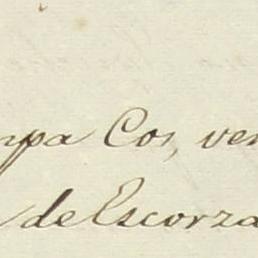 mpa Cos, ven
de Escorza